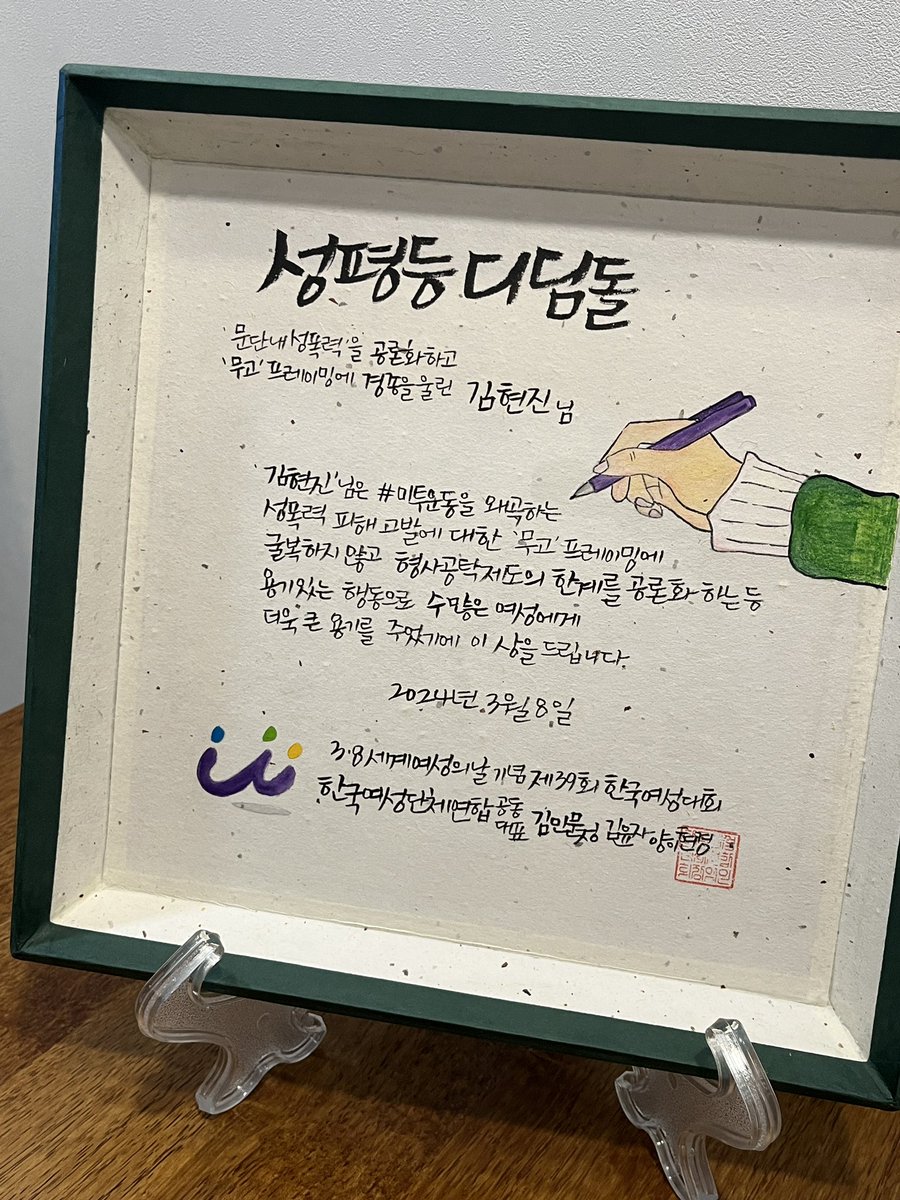 성평등 디딤돌
'문단 내 성폭력'을 공론화하고
'무고' 프레이밍에 경종을 울린 김현진 님
'김현진'님은 #미투운동을 왜곡하는
성폭력 피해 고발에 대한 '무고' 프레이밍에
굴복하지 않고 형사공탁제도의 한계를 공론화 하는 등
용기있는 행동으로 수많은 여성에게
더욱 큰 용기를 주었기에 이 상을 드립니다.
2024년 3월 8일
3·8 세계여성의날 기념 제39회 한국여성대회
한국여성단체연합 공동대표 김민문정 김윤자 양이현경